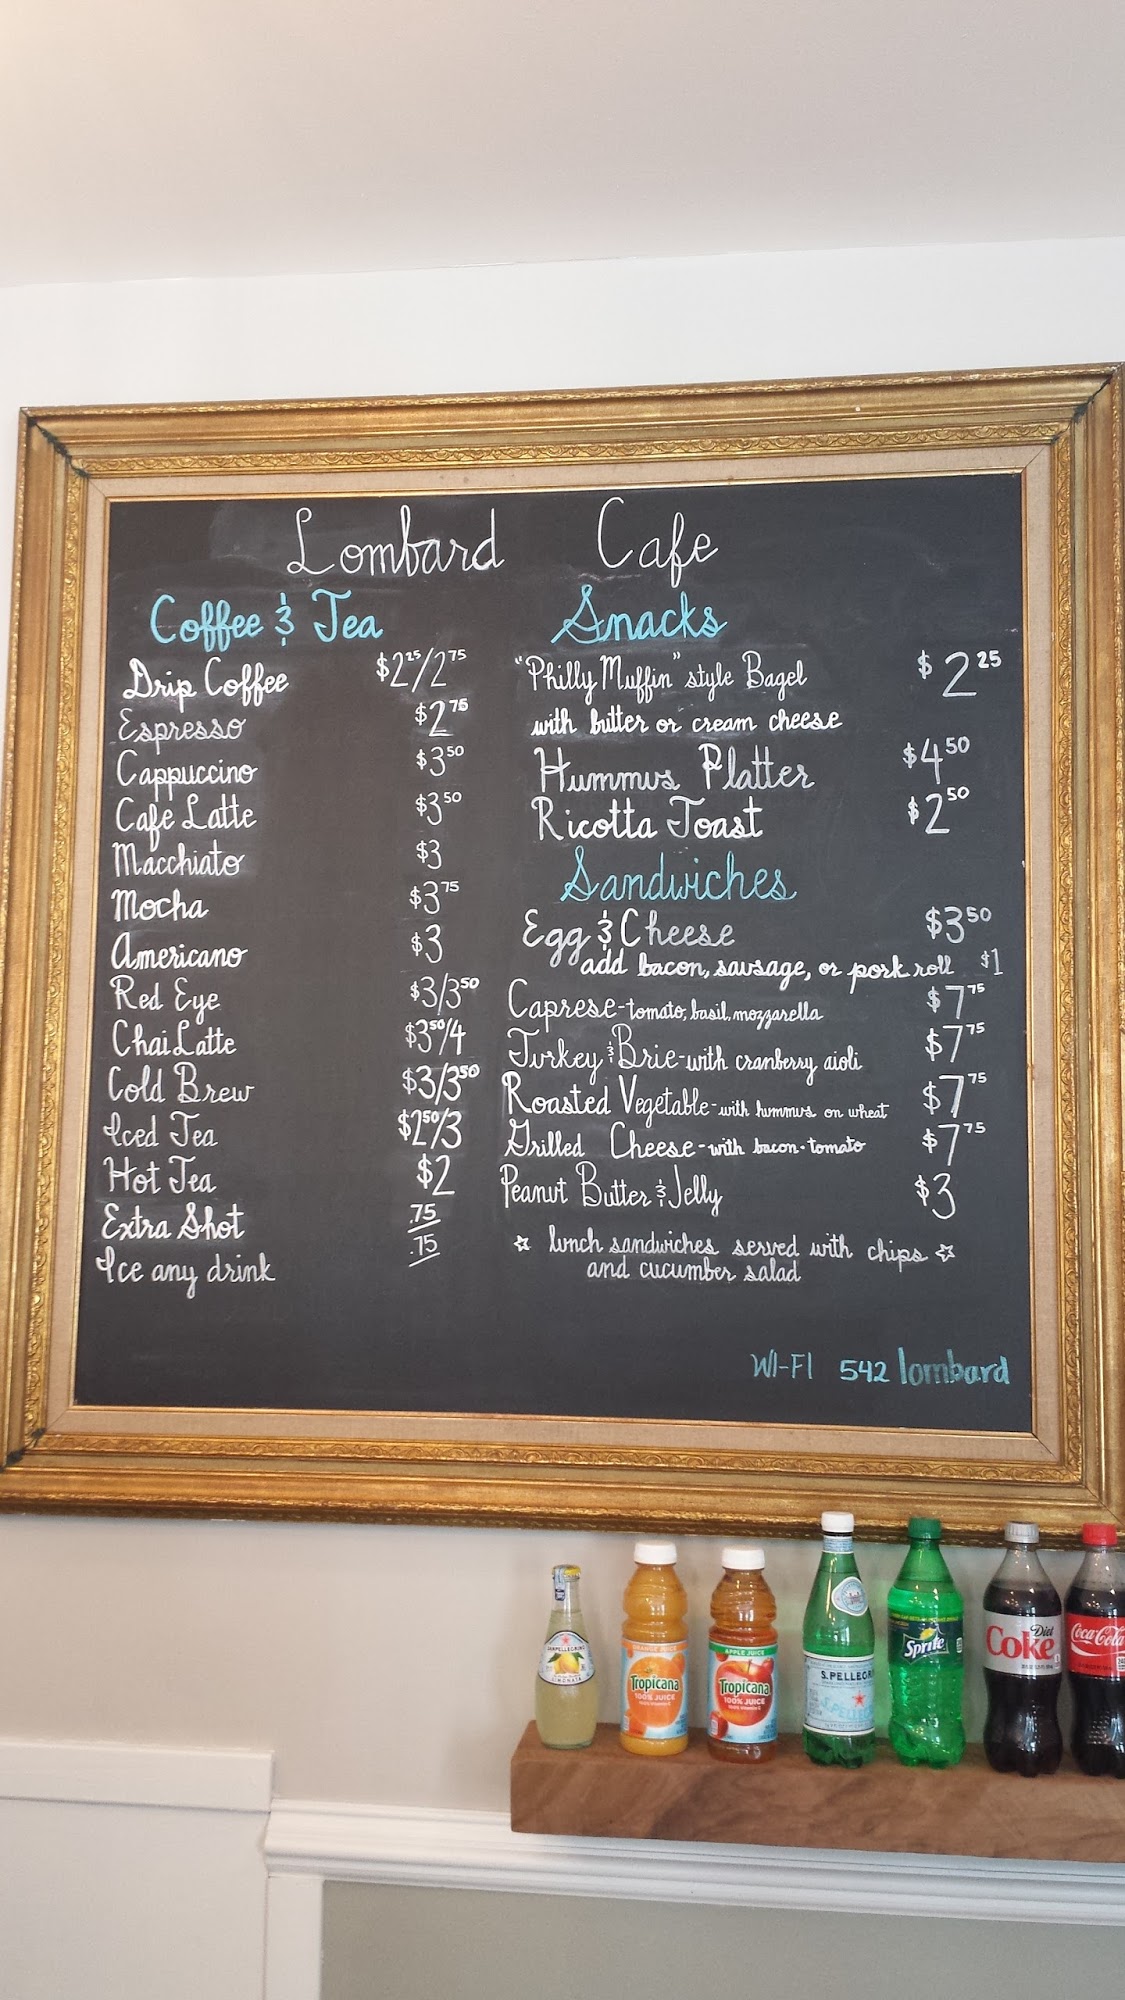 Lombard Cafe
Coffee & Tea
Drip Coffee $2.25/2.75
Espresso $2.75
Cappuccino $3.50
Cafe Latte $3.50
Macchiato $3
Mocha $3.75
Americano $3
Red Eye $3/3.50
Chai Latte $3.50/4
Cold Brew $3/3.50
Iced Tea $2.50/3
Hot Tea $2
Extra Shot .75
Ice any drink .75
Snacks
"Philly Muffin" style Bagel $2.25
with butter or cream cheese
Hummus Platter $4.50
Ricotta Toast $2.50
Sandwiches
Egg & Cheese $3.50
add bacon, sausage, or pork roll $1
Caprese - tomato, basil, mozzarella $7.75
Turkey & Brie - with cranberry aioli $7.75
Roasted Vegetable - with hummus on wheat $7.75
Grilled Cheese - with bacon · tomato $7.75
Peanut Butter & Jelly $3
☆ lunch sandwiches served with chips ☆
and cucumber salad
WI-FI 542 lombard
SANPELLEGRINO
LIMONATA
ORANGE JUICE
Tropicana
100% JUICE
APPLE JUICE
Tropicana
100% JUICE
S.PELLEGRI
S.PELLEG
Sprite
Diet
Coke
Coca-Cola